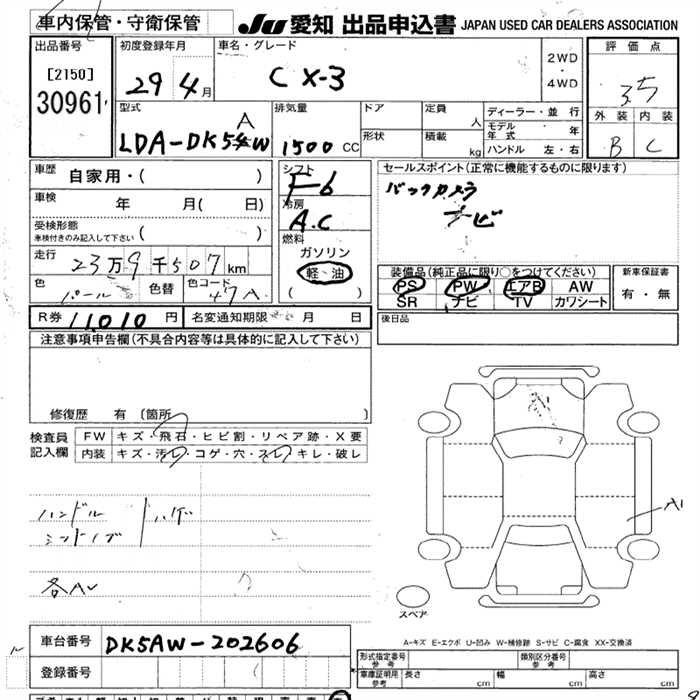 車内保管・守衛保管
JU 愛知 出品申込書 JAPAN USED CAR DEALERS ASSOCIATION
出品番号
[2150]
30961
初度登録年月
29年4月
車名・グレード
CX-3
2WD
・
4WD
評価点
3.5
外装 内装
B C
型式
LDA-DK5AW
A
排気量
1500 CC
ドア
形状
定員 人
積載 kg
ディーラー・並行
モデル年式 年
ハンドル 左・右
車歴
自家用・( )
車検 年 月( 日)
受検形態
車検付きのみ記入して下さい ( )
走行 23万9千507km
色 パール 色替 色コード 47A
シフト
F6
冷房
A.C
燃料
ガソリン
軽・油
( )
セールスポイント(正常に機能するものに限ります)
バックカメラ
ナビ
装備品(純正品に限り○をつけてください)
PS PW エアB AW
SR ナビ TV カワシート
新車保証書
有・無
R券 11,010円 名変通知期限 月 日
後日品
注意事項申告欄(不具合内容等は具体的に記入して下さい)
修復歴 有 〔箇所 〕
検査員
記入欄
FW キズ・飛石・ヒビ割・リペア跡・X要
内装 キズ・汚レ・コゲ・穴・スレ・キレ・破レ
ハンドル
シフトノブ
ハゲ
各AU
A1
A1
スペア
A-キズ E-エクボ U-凹み W-補修跡 S-サビ C-腐食 XX-交換済
車台番号 DK5AW-202606
登録番号
形式指定番号
参考
類別区分番号
参考
車庫証明用
参考
長さ cm 幅 cm 高さ cm